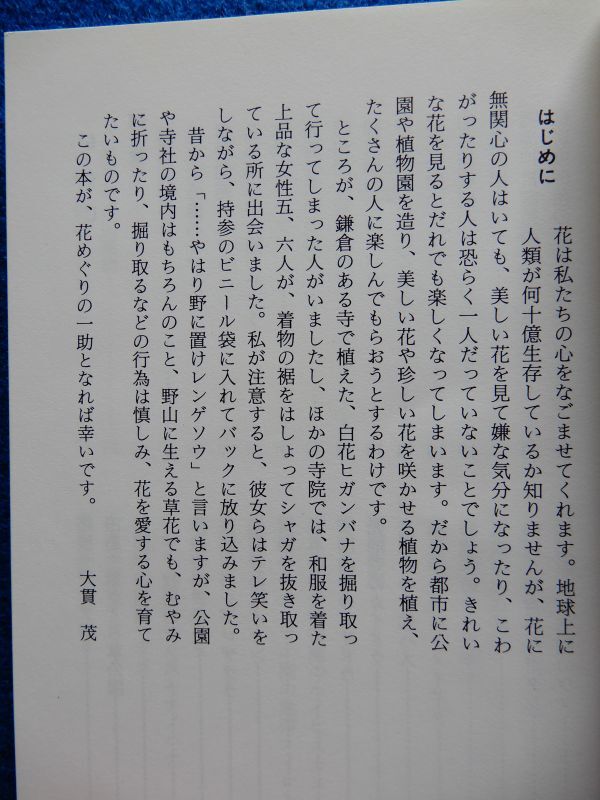 はじめに
花は私たちの心をなごませてくれます。地球上に
人類が何十億生存しているか知りませんが、花に
無関心の人はいても、美しい花を見て嫌な気分になったり、こわ
がったりする人は恐らく一人だっていないことでしょう。きれい
な花を見るとだれでも楽しくなってしまいます。だから都市に公
園や植物園を造り、美しい花や珍しい花を咲かせる植物を植え、
たくさんの人に楽しんでもらおうとするわけです。
ところが、鎌倉のある寺で植えた、白花ヒガンバナを掘り取っ
て行ってしまった人がいましたし、ほかの寺院では、和服を着た
上品な女性五、六人が、着物の裾をはしょってシャガを抜き取っ
ている所に出会いました。私が注意すると、彼女らはテレ笑いを
しながら、持参のビニール袋に入れてバックに放り込みました。
昔から「……やはり野に置けレンゲソウ」と言いますが、公園
や寺社の境内はもちろんのこと、野山に生える草花でも、むやみ
に折ったり、掘り取るなどの行為は慎しみ、花を愛する心を育て
たいものです。
この本が、花めぐりの一助となれば幸いです。
大貫 茂